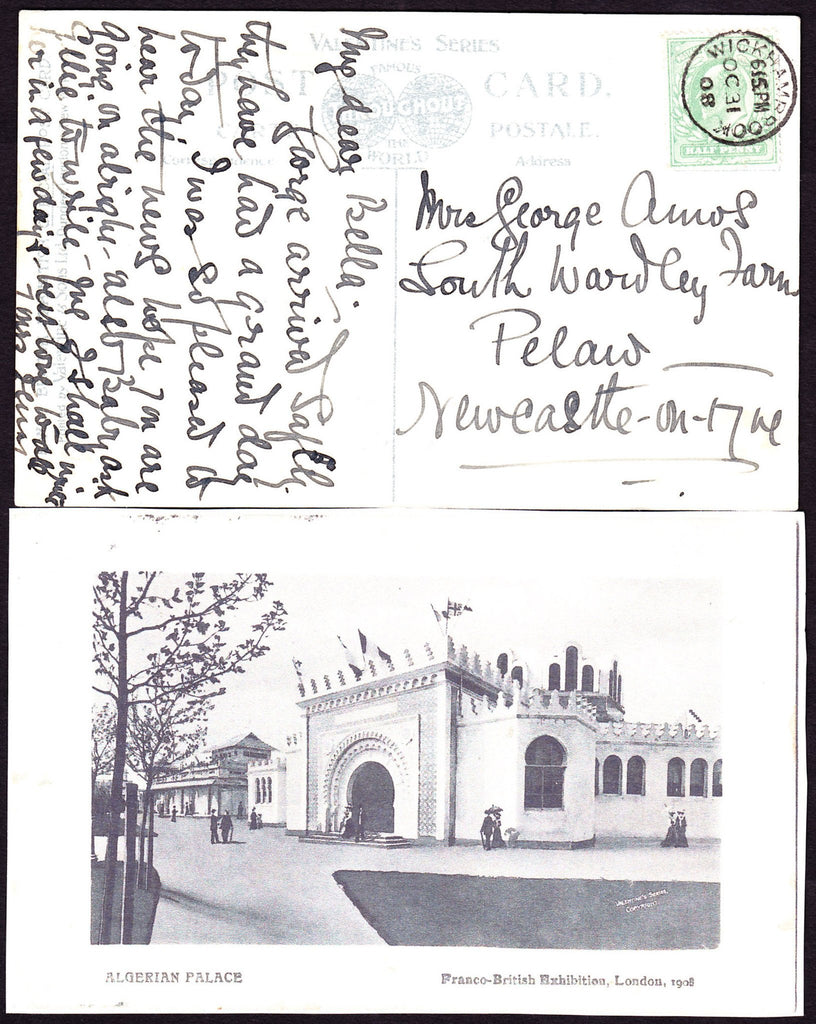 VALENTINE'S SERIES
FAMOUS
THROUGHOUT
THE
WORLD
POST CARD.
CARTE POSTALE.
Correspondence
Address
WICKHAMBROOK
615 PM
OC 31
08
HALF PENNY
My dear Bella.
George arrived safely
they have had a grand day
today. I was so pleased to
hear the news hope you are
going on alright - also Baby. ask
Ellie to write - me I shall write
for in a few days - best love to
Mrs George Amos
South Wardley Farm
Pelaw
Newcastle-on-Tyne
VALENTINE'S SERIES
COPYRIGHT
ALGERIAN PALACE
Franco-British Exhibition, London, 1908